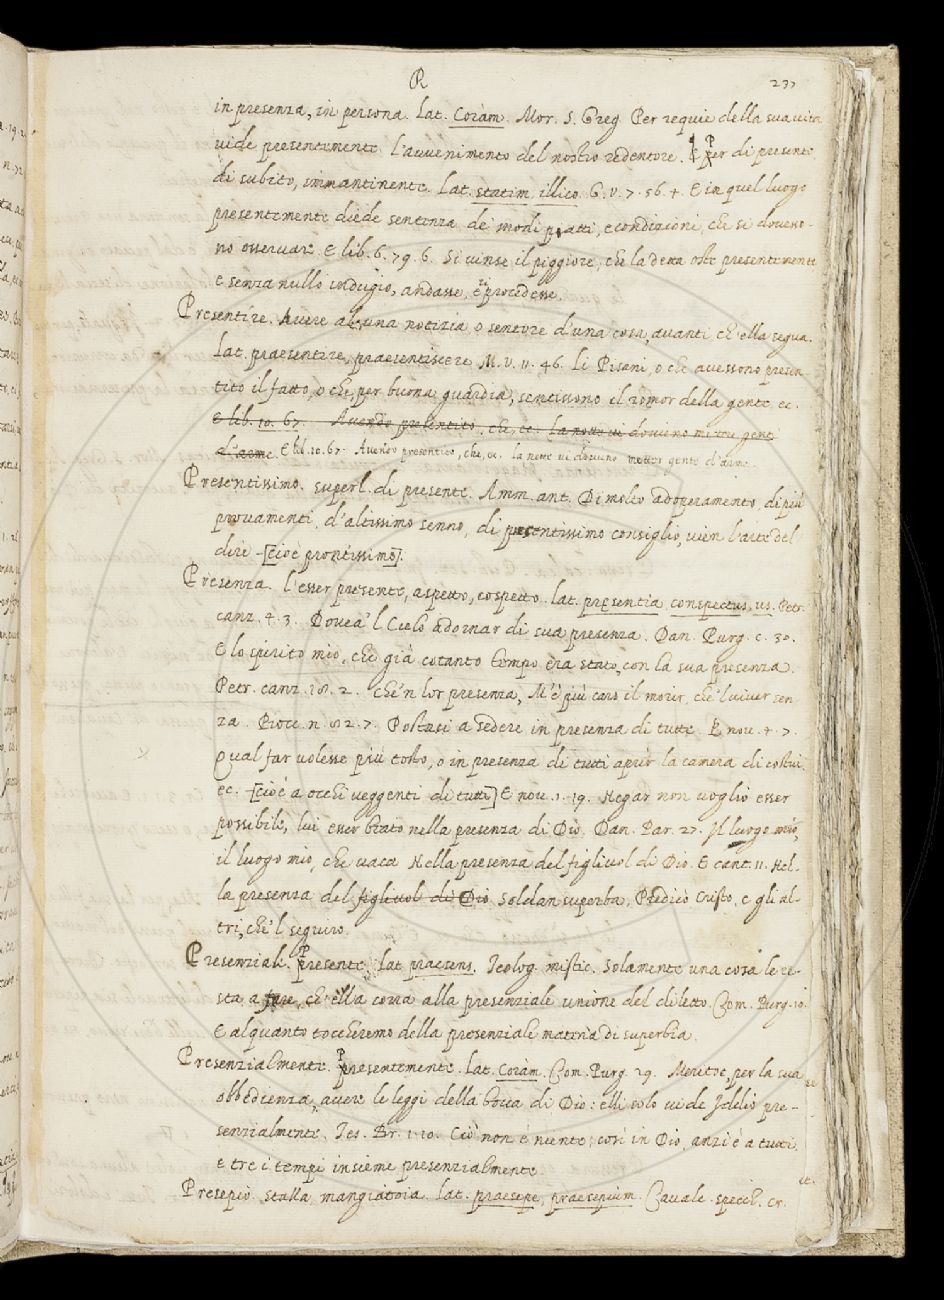 R 237
in presenza, in persona. Lat. Coràm. Mor. S. Greg. Per requie della sua vita
vide presentemente l'avvenimento del nostro redentore. ¶ Per di presente
di subito, immantinente. Lat. statim, illico. G. V. 7. 56. 4. E in quel luogo
presentemente diede sentenza de' modi patti, e condizioni, che si doveno-
no osservare. E lib. 6. 79. 6. Si vinse il piggiore, che la detta oste presentemente
e senza nullo indugio, andasse, e procedesse.
Presentire. Avere alcuna notizia o sentore d'una cosa, avanti ch'ella segua.
Lat. praesentire, praesentiscere M. V. 11. 46. Li Pisani, o che avessono presen-
tito il fatto, o che, per buona guardia, sentissono il romor della gente, ec.
E lib. 10. 67. Avendo presentito, che, ec. la notte vi dovieno metter gente
d'arme. E lib. 10. 67. Avendo presentito, che, ec. la notte vi dovieno metter gente d'arme.
Presentissimo. superl. di presente. Amm. ant. Di molto adoperamento, di più
provamenti, d'altissimo senno, di presentissimo consiglio, vien l'arte del
dire -[cioè prontissimo].
Presenza. l'esser presente, aspetto, cospetto. lat. presentia, conspectus, us. Petr.
canz. 4. 3. Dovea 'l Cielo adornar di sua presenza. Dan. Purg. c. 30.
E lo spirito mio, che già cotanto tempo era stato, con la sua presenza.
Petr. canz. 2. Che 'n lor presenza, M'è più caro il morir, che 'l viver sen
za. Bocc. n. 2. 7. Postasi a sedere in presenza di tutti. E nov. 4. 7.
Qual far volesse più tosto, o in presenza di tutti aprir la camera di costui
ec. -[cioè a occhi veggenti di tutti] E nov. 1. 19. Negar non voglio esser
possibile, lui esser beato nella presenza di Dio. Dan. Par. 27. Il luogo mio,
il luogo mio, che vaca Nella presenza del figliuol di Dio. E cant. 11. Nel-
la presenza del figliuol di Dio Soldan superba, Predicò Cristo, e gli al-
tri, che 'l seguiro.
Presenziale. Presente. lat praesens. Teolog. mistic. Solamente una cosa le re-
sta a fare, ch'ella corra alla presenziale unione del diletto. Com. Purg. 10.
E alquanto toccheremo della presenziale materia di superbia.
Presenzialmente. Presentemente. lat. Coràm. Com. Purg. 29. Mentre, per la sua
obbedienza, avere le leggi della bocca di Dio: elli solo vide Iddio pre-
senzialmente. Tes. Br. 1. 10. Ciò non è niente; così in Dio, anzi è a tutti
e tre i tempi insieme presenzialmente.
Presepio. stalla, mangiatoia. lat. praesepe, praesepium. Cavalc. specch. cr.